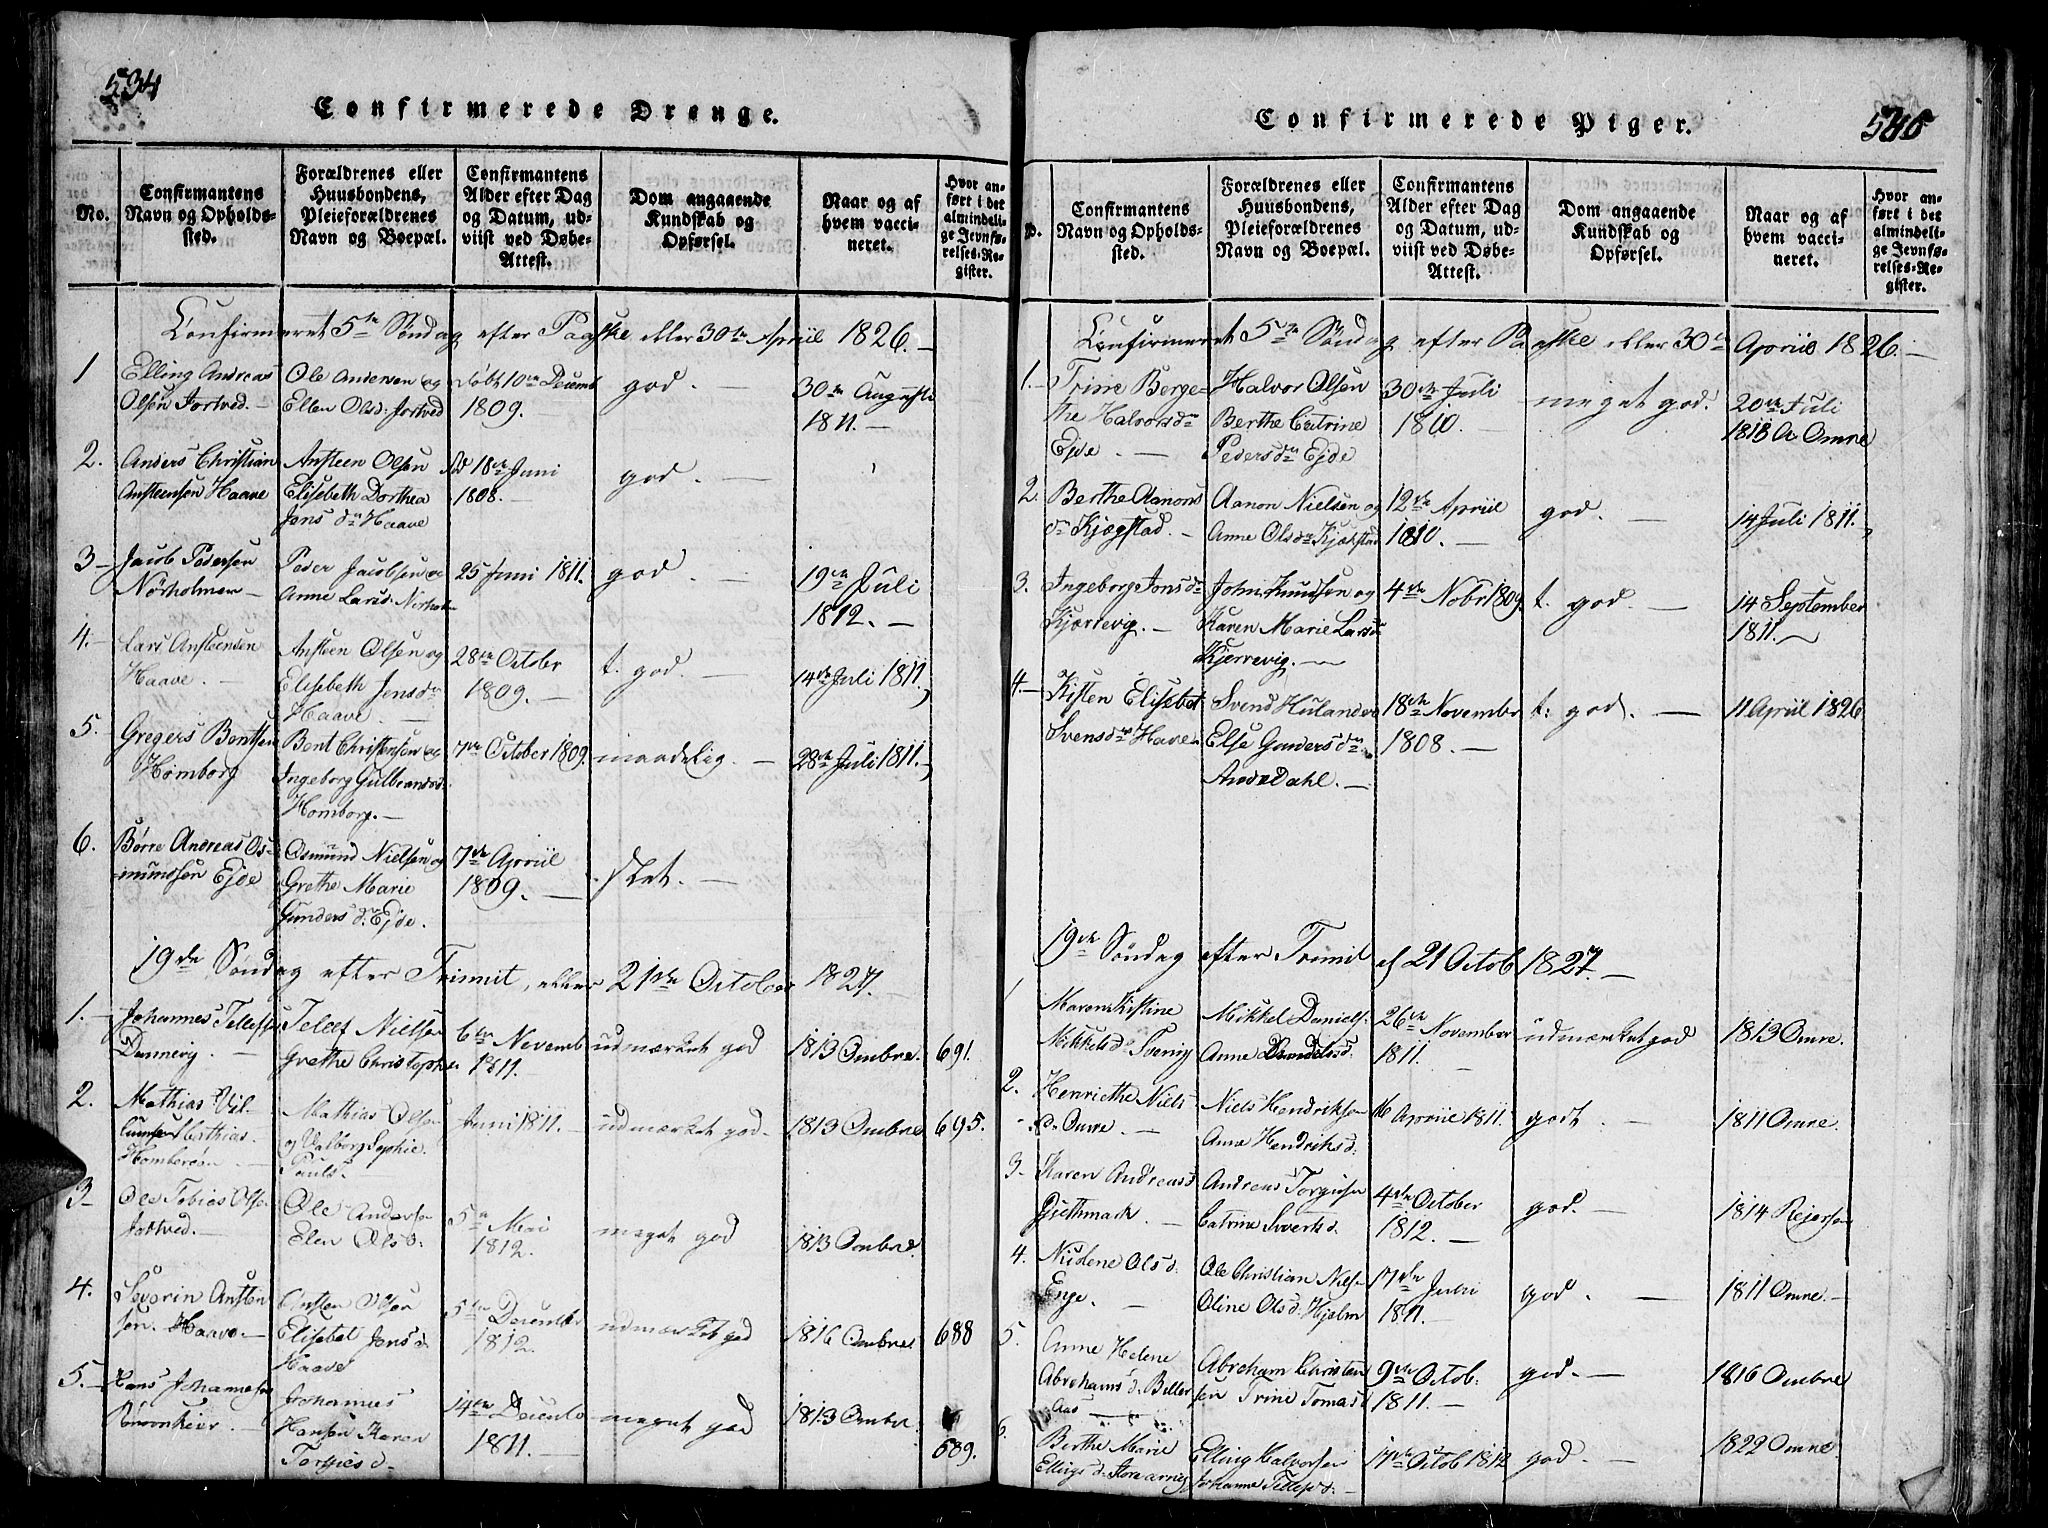 534
Confirmerede Drenge.
No.
Confirmantens
Navn og Opholds-
sted.
Forældrenes eller
Huusbondens,
Pleieforældrenes
Navn og Boepæl.
Confirmantens
Alder efter Dag
og Datum, ud-
viist ved Døbe-
Attest.
Dom angaaende
Kundskab og
Opførsel.
Naar og af
hvem vacci-
neret.
Hvor an-
ført i det
almindeli-
ge Jevnfø-
relses-Re-
gister.
Confirmeret 5te Søndag efter Paaske eller 30te Apriil 1826. —
1
Elling Andreas
Olsen Jortved. —
Ole Andersen og
Ellen Olsd: Jortved
født 10de Decemb
1809. —
god. —
30te Augusti
1811. —
2.
Anders Christian
Ansteensen Haave
Ansteen Olsen
Elisebeth Dorthea
Jens dr Haave
18de Juni
1808. —
god. —
3 —
Jacob Pedersen
Nörholmen —
Peder Jacobsen og
Anne Larsd: Norholm
25 Juni 1811.
god. —
19de Juli
1812. —
4. —
Lars Ansteensen
Haave. —
Ansteen Olsen og
Elisebeth Jensdr
Haave. —
28de Octobr
1809. —
t. god. —
14de Juli 1811.
5.
Gregers Bentsen
Homborg
Bent Christensen og
Ingeborg Gulbrandsd.
Homborg. —
7de October 1809.
maadelig. —
28de Juli 1811.
6.
Børre Andreas Os-
mundsen Ejde
Osmund Nielsen og
Grethe Marie
Gunders d: Ejde.
7de Apriil
1809. —
slet. —
19de Søndag efter Trinnit, eller 21de October 1827. —
1. —
Johannes Tellefs
Dannevig. —
Telcef Nielsen
Grethe Christophe
6te Novemb
1811.
udmærket god
1813 Ombre.
691.
2.
Mathias Vil-
Mathias
Mathias Olsen
og Valborg Sophie
Pauls
Juni 1811. —
udmærket god.
1813 Ombre
695.
3-
Ole Tobias Olse
Jortved. —
Ole Anderse
Elen Olsd:
5te Mai
1812.
meget god
1813 Ombre.
4.
Severin Ansten
sen. Haave —
Ansten Olsen
Elisebet Jensd
Haave
5te December
1812.
udmærket god
1816 Ombre
688
5. —
Hans Johannesen
Johannes
Hansen Karen
Torgiesd-
14de Decemb
1811. —
meget god
1813 Ombre
689.
Confirmerede Piger.
535
Confirmantens
Navn og Opholds-
sted.
Forældrenes eller
Huusbondens,
Pleieforældrenes
Navn og Boepæl.
Confirmantens
Alder efter Dag
og Datum, ud-
viist ved Døbe-
Attest.
Dom angaaende
Kundskab og
Opførsel.
Naar og af
hvem vacci-
neret.
Hvor an-
ført i det
almindeli-
ge Jevnfø-
relses-Re-
gister.
Confirmeret 5te Søndag efter Paaske eller 30te Apriil 1826. —
1. —
Trine Berge-
the Halvorsdr
Ejde —
Halvor Olsen
Berthe Catrine
Pedersdr Ejde
30te Juli
1810. —
meget god.
20de Juli
1813 A Omre
2.
Berthe Aanons
dr Kjægstad. —
Aanon Nielsen og
Anne Olsdr Kjækstad
12de Apriil
1810. —
god. —
14 Juli 1811.
3.
Ingeborg Jonsdr
Kjørrevig. —
John Knudsen og
Karen Marie Larsd
Kjerrevig. —
4de Nobr 1809.
t. god. —
14 September
1811. —
4. —
Kisten Elisebet
Svensdr Haven
Svend Hulander
Else Gundersdr
Anodedahl. —
18de Novembr
1808. —
t: god. —
11 Apriil 1826
19de Søndag efter Trinit el 21 Octob 1827. —
1
Maren Kistine
Mikkelsd
Mikkel Daniels.
Anne
26de November
1811. —
udmærket god
1813 Omre.
2.
Henriethe Niels
d- Omre —
Niels Hendriksen
Anne Hendriksd:
16 Apriil 1811.
godt —
1811 Omre.
3-
Karen Andreasd
Giethmark. —
Andreas Torgiesen
Catrine Sivertsd.
4de October
1812. —
god. —
1814 Rejersen
4.
Nielene Olsd:
Enge. —
Ole Christian Nielse
Oline Olsd: Hjelm
17de Juli
1811. —
god. —
1811 Omre —
5.
Anne Helene
Abrehams d. Beller
Aas —
Abreham Christen
sen Trine Tomasd
9de Octob:
1811. —
god. —
1816 Ombre
6.
Berthe Marie
Ellings d. Store
Elling Halvorsen
Johanne Tellefsd: —
17de Octob 1812
god —
1822 Omre